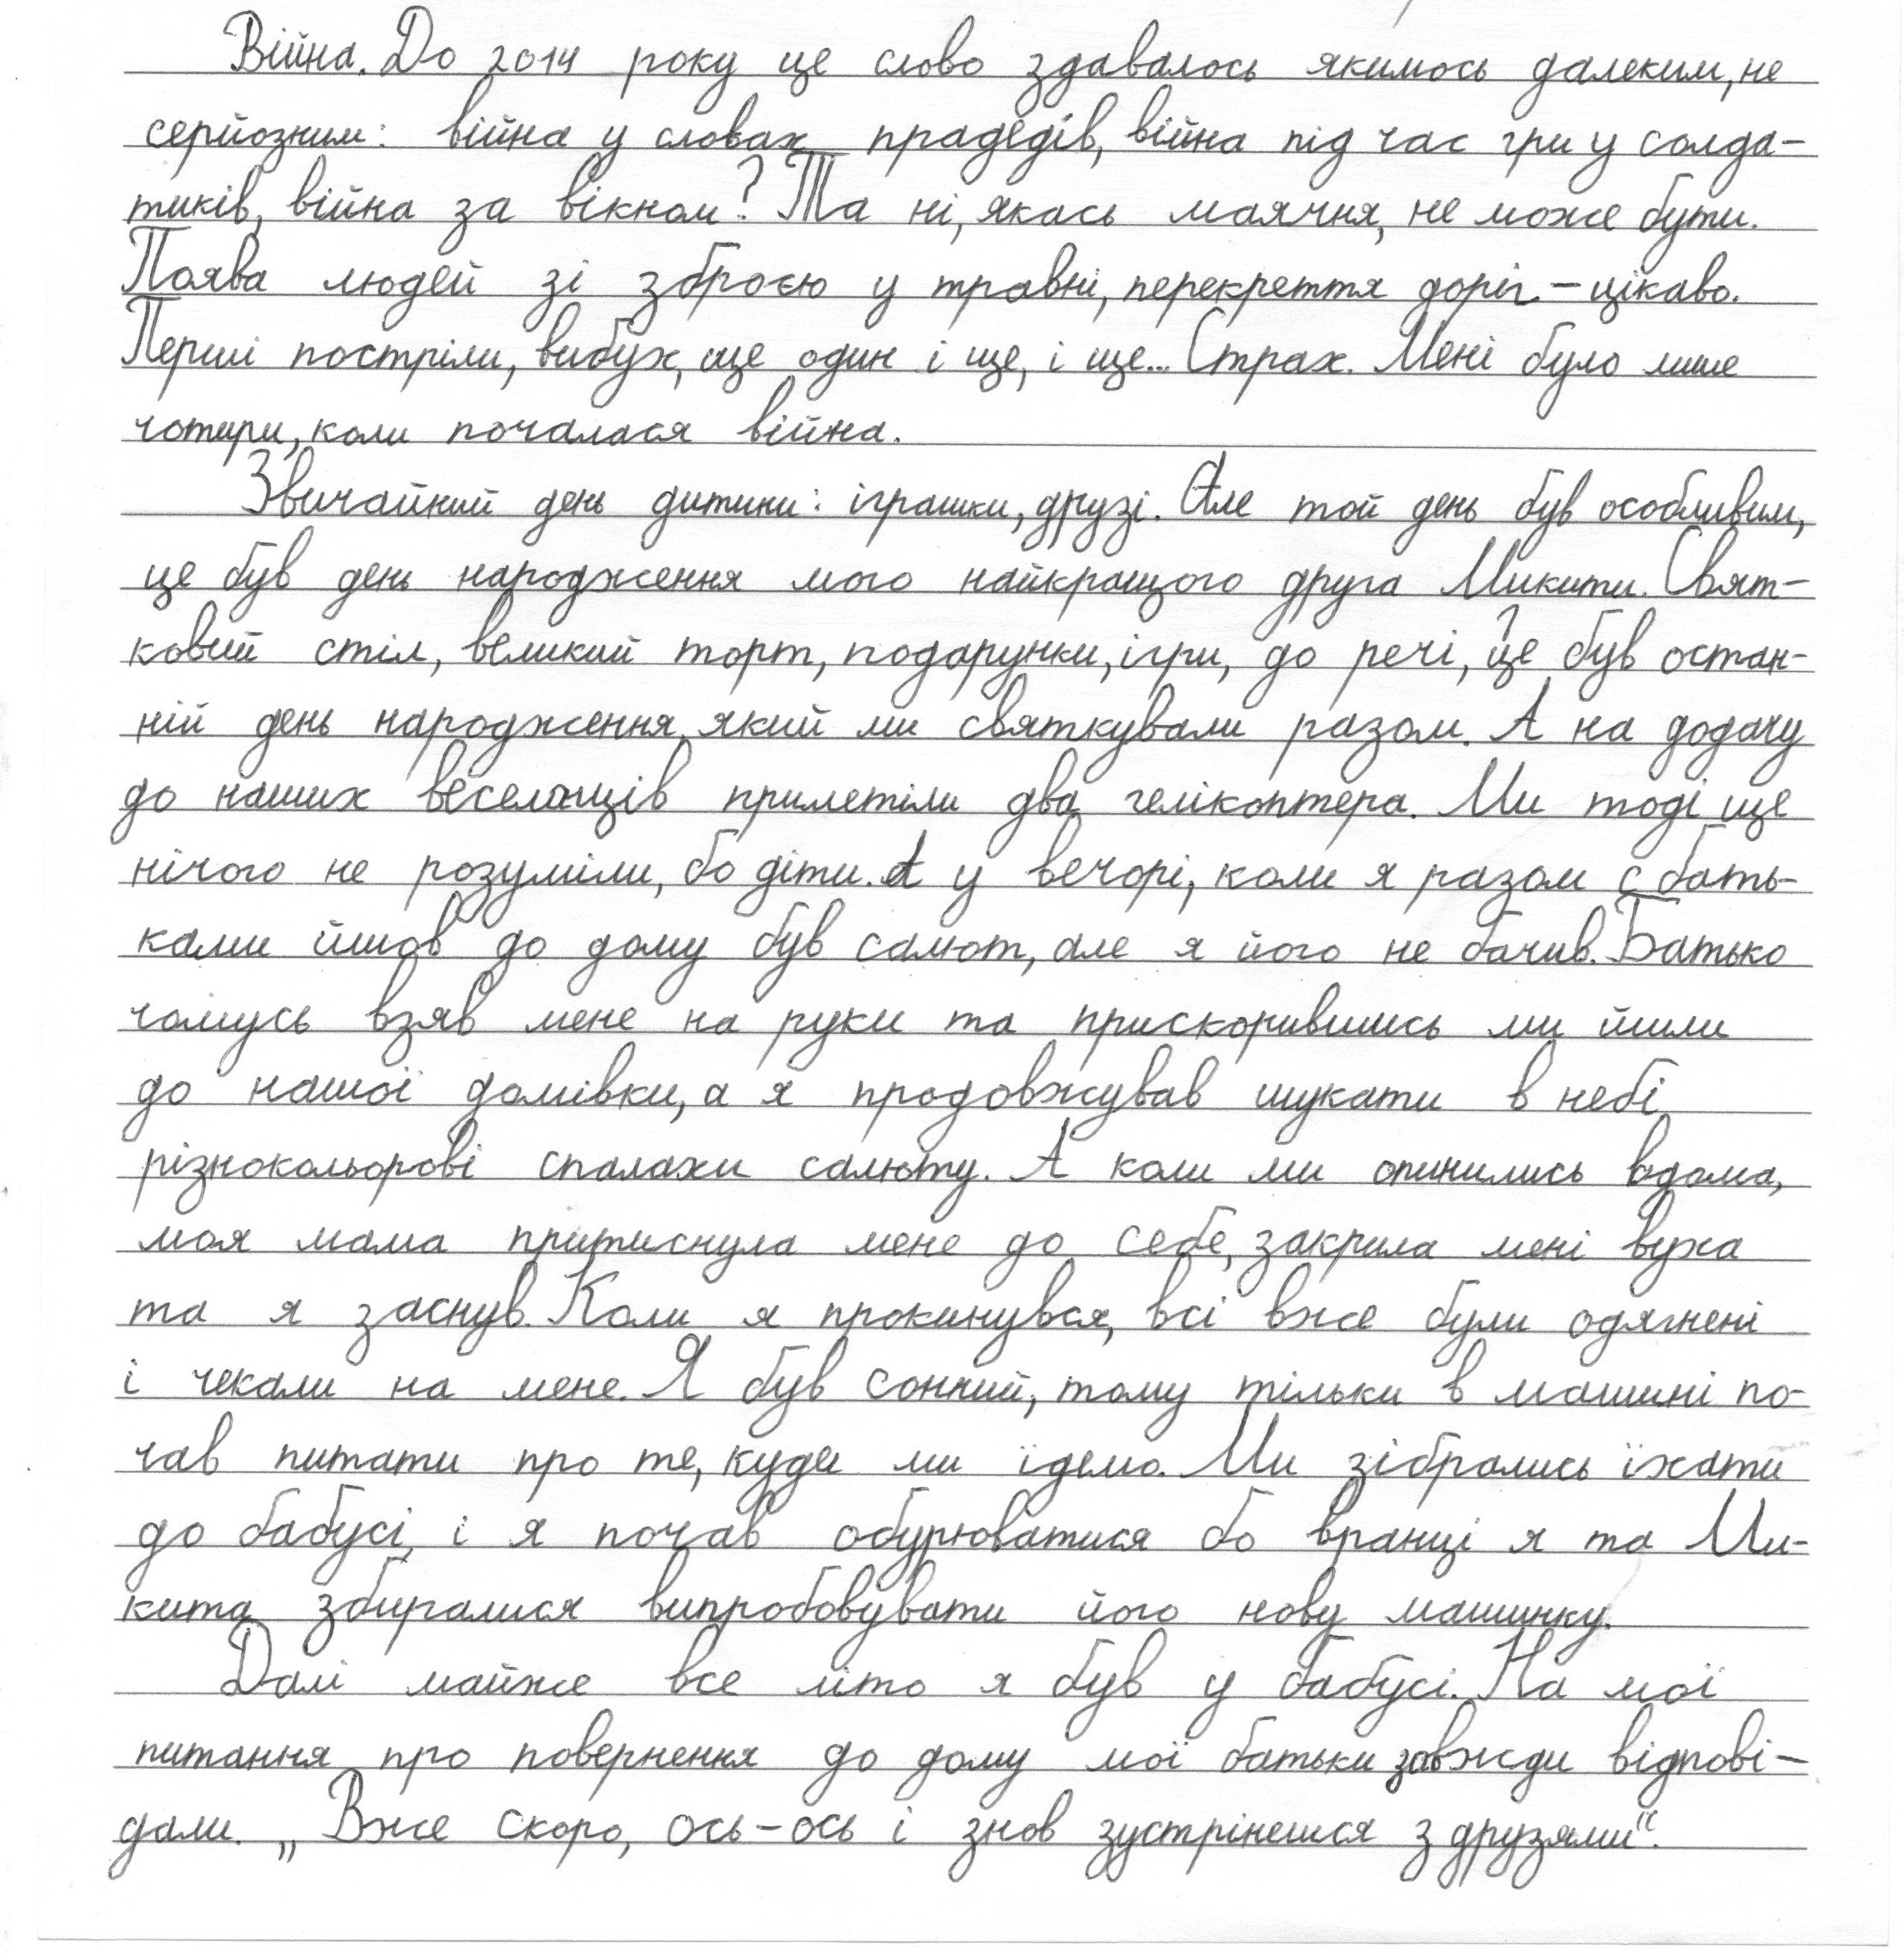 Війна. До 2014 року це слово здавалось якимось далеким, не
серйозним: війна у словах прадедів, війна під час гри у солда-
тиків, війна за вікном? Та ні, якась маячня, не може бути.
Поява людей зі зброєю у травні, перекреття доріг. – цікаво.
Перші постріли, вибух, ще один і ще, і ще... Страх. Мені було лише
чотири, коли почалася війна.
Звичайний день дитини: іграшки, друзі. Але той день був особливим,
це був день народження мого найкращого друга Микити. Свят-
ковий стіл, великий торт, подарунки, ігри, до речі, це був остан-
ній день народження, який ми святкували разом. А на додачу
до наших веселощів прилетіли два гелікоптера. Ми тоді ще
нічого не розуміли, бо діти. А у вечорі, коли я разом с бать-
ками йшов до дому був салют, але я його не бачив. Батько
чомусь взяв мене на руки та прискорившись ми йшли
до нашої домівки, а я продовжував шукати в небі
різнокольорові спалахи салюту. А коли ми опинились вдома,
моя мама притиснула мене до себе, закрила мені вуха
та я заснув. Коли я прокинувся, всі вже були одягнені
і чекали на мене. Я був сонний, тому тільки в машині по-
чав питати про те, куди ми їдемо. Ми зібрались їхати
до бабусі, і я почав обурюватися бо вранці я та Ми-
кита збиралися випробовувати його нову машинку.
Далі майже все літо я був у бабусі. На мої
питання про повернення до дому мої батьки завжди відпові-
дали. „Вже скоро, ось-ось і знов зустрінешся з друзями“.